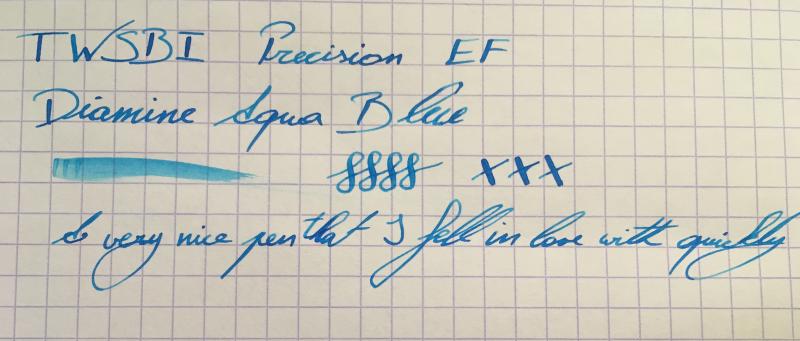 TWSBI Precision EF
Diamine Aqua Blue
ffff xxx
A very nice pen that I fell in love with quickly